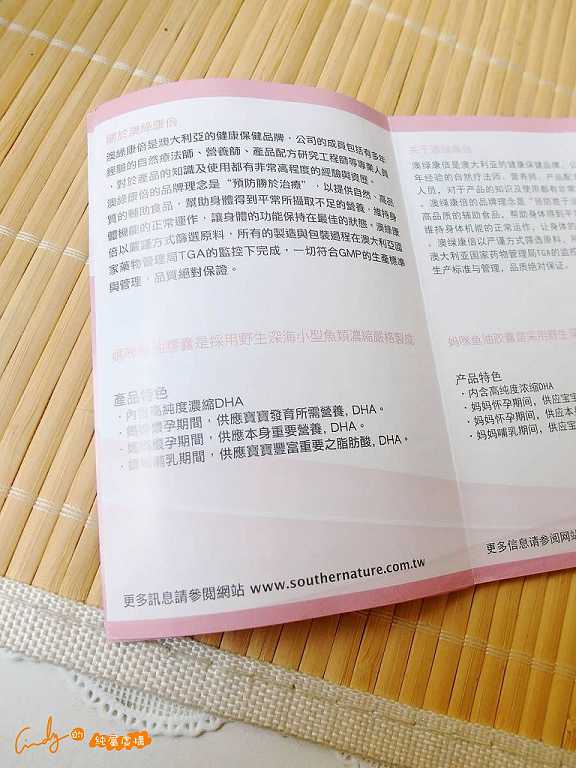 關於澳綠康倍
澳綠康倍是澳大利亞的健康保健品牌，公司的成員包括有多年
經驗的自然療法師、營養師、產品配方研究工程師等專業人員
，對於產品的知識及使用都有非常高程度的經驗與資歷。
澳綠康倍的品牌理念是“預防勝於治療”，以提供自然、高品
質的輔助食品，幫助身體得到平常所攝取不足的營養，維持身
體機能的正常運作，讓身體的功能保持在最佳的狀態。澳綠康
倍以嚴謹方式篩選原料，所有的製造與包裝過程在澳大利亞國
家藥物管理局TGA的監控下完成，一切符合GMP的生產標準
與管理，品質絕對保證。
媽咪魚油膠囊是採用野生深海小型魚類濃縮嚴格製成
產品特色
・內含高純度濃縮DHA
・媽媽懷孕期間，供應寶寶發育所需營養, DHA。
・媽媽懷孕期間，供應本身重要營養, DHA。
・媽媽哺乳期間，供應寶寶豐富重要之脂肪酸, DHA。
更多訊息請參閱網站 www.southernature.com.tw
关于澳绿康倍
澳绿康倍是澳大利亚的健康保健品牌，公
年经验的自然疗法师、营养师、产品配
人员，对于产品的知识及使用都有非常
。澳绿康倍的品牌理念是“预防胜于治
高品质的辅助食品，帮助身体得到平
维持身体机能的正常运作，让身体的
。澳绿康倍以严谨方式筛选原料，所
澳大利亚国家药物管理局TGA的监控
生产标准与管理，品质绝对保证。
妈咪鱼油胶囊是采用野生深
产品特色
・内含高纯度浓缩DHA
・妈妈怀孕期间，供应宝宝
・妈妈怀孕期间，供应本
・妈妈哺乳期间，供应宝
更多信息请参阅网站
Cindy的
純屬虛構